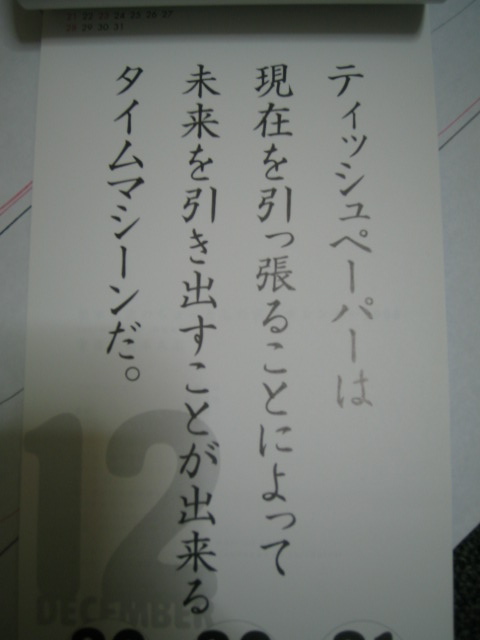 21 22 23 24 25 26 27
28 29 30 31
ティッシュペーパーは
現在を引っ張ることによって
未来を引き出すことが出来る
タイムマシーンだ。
12
DECEMBER